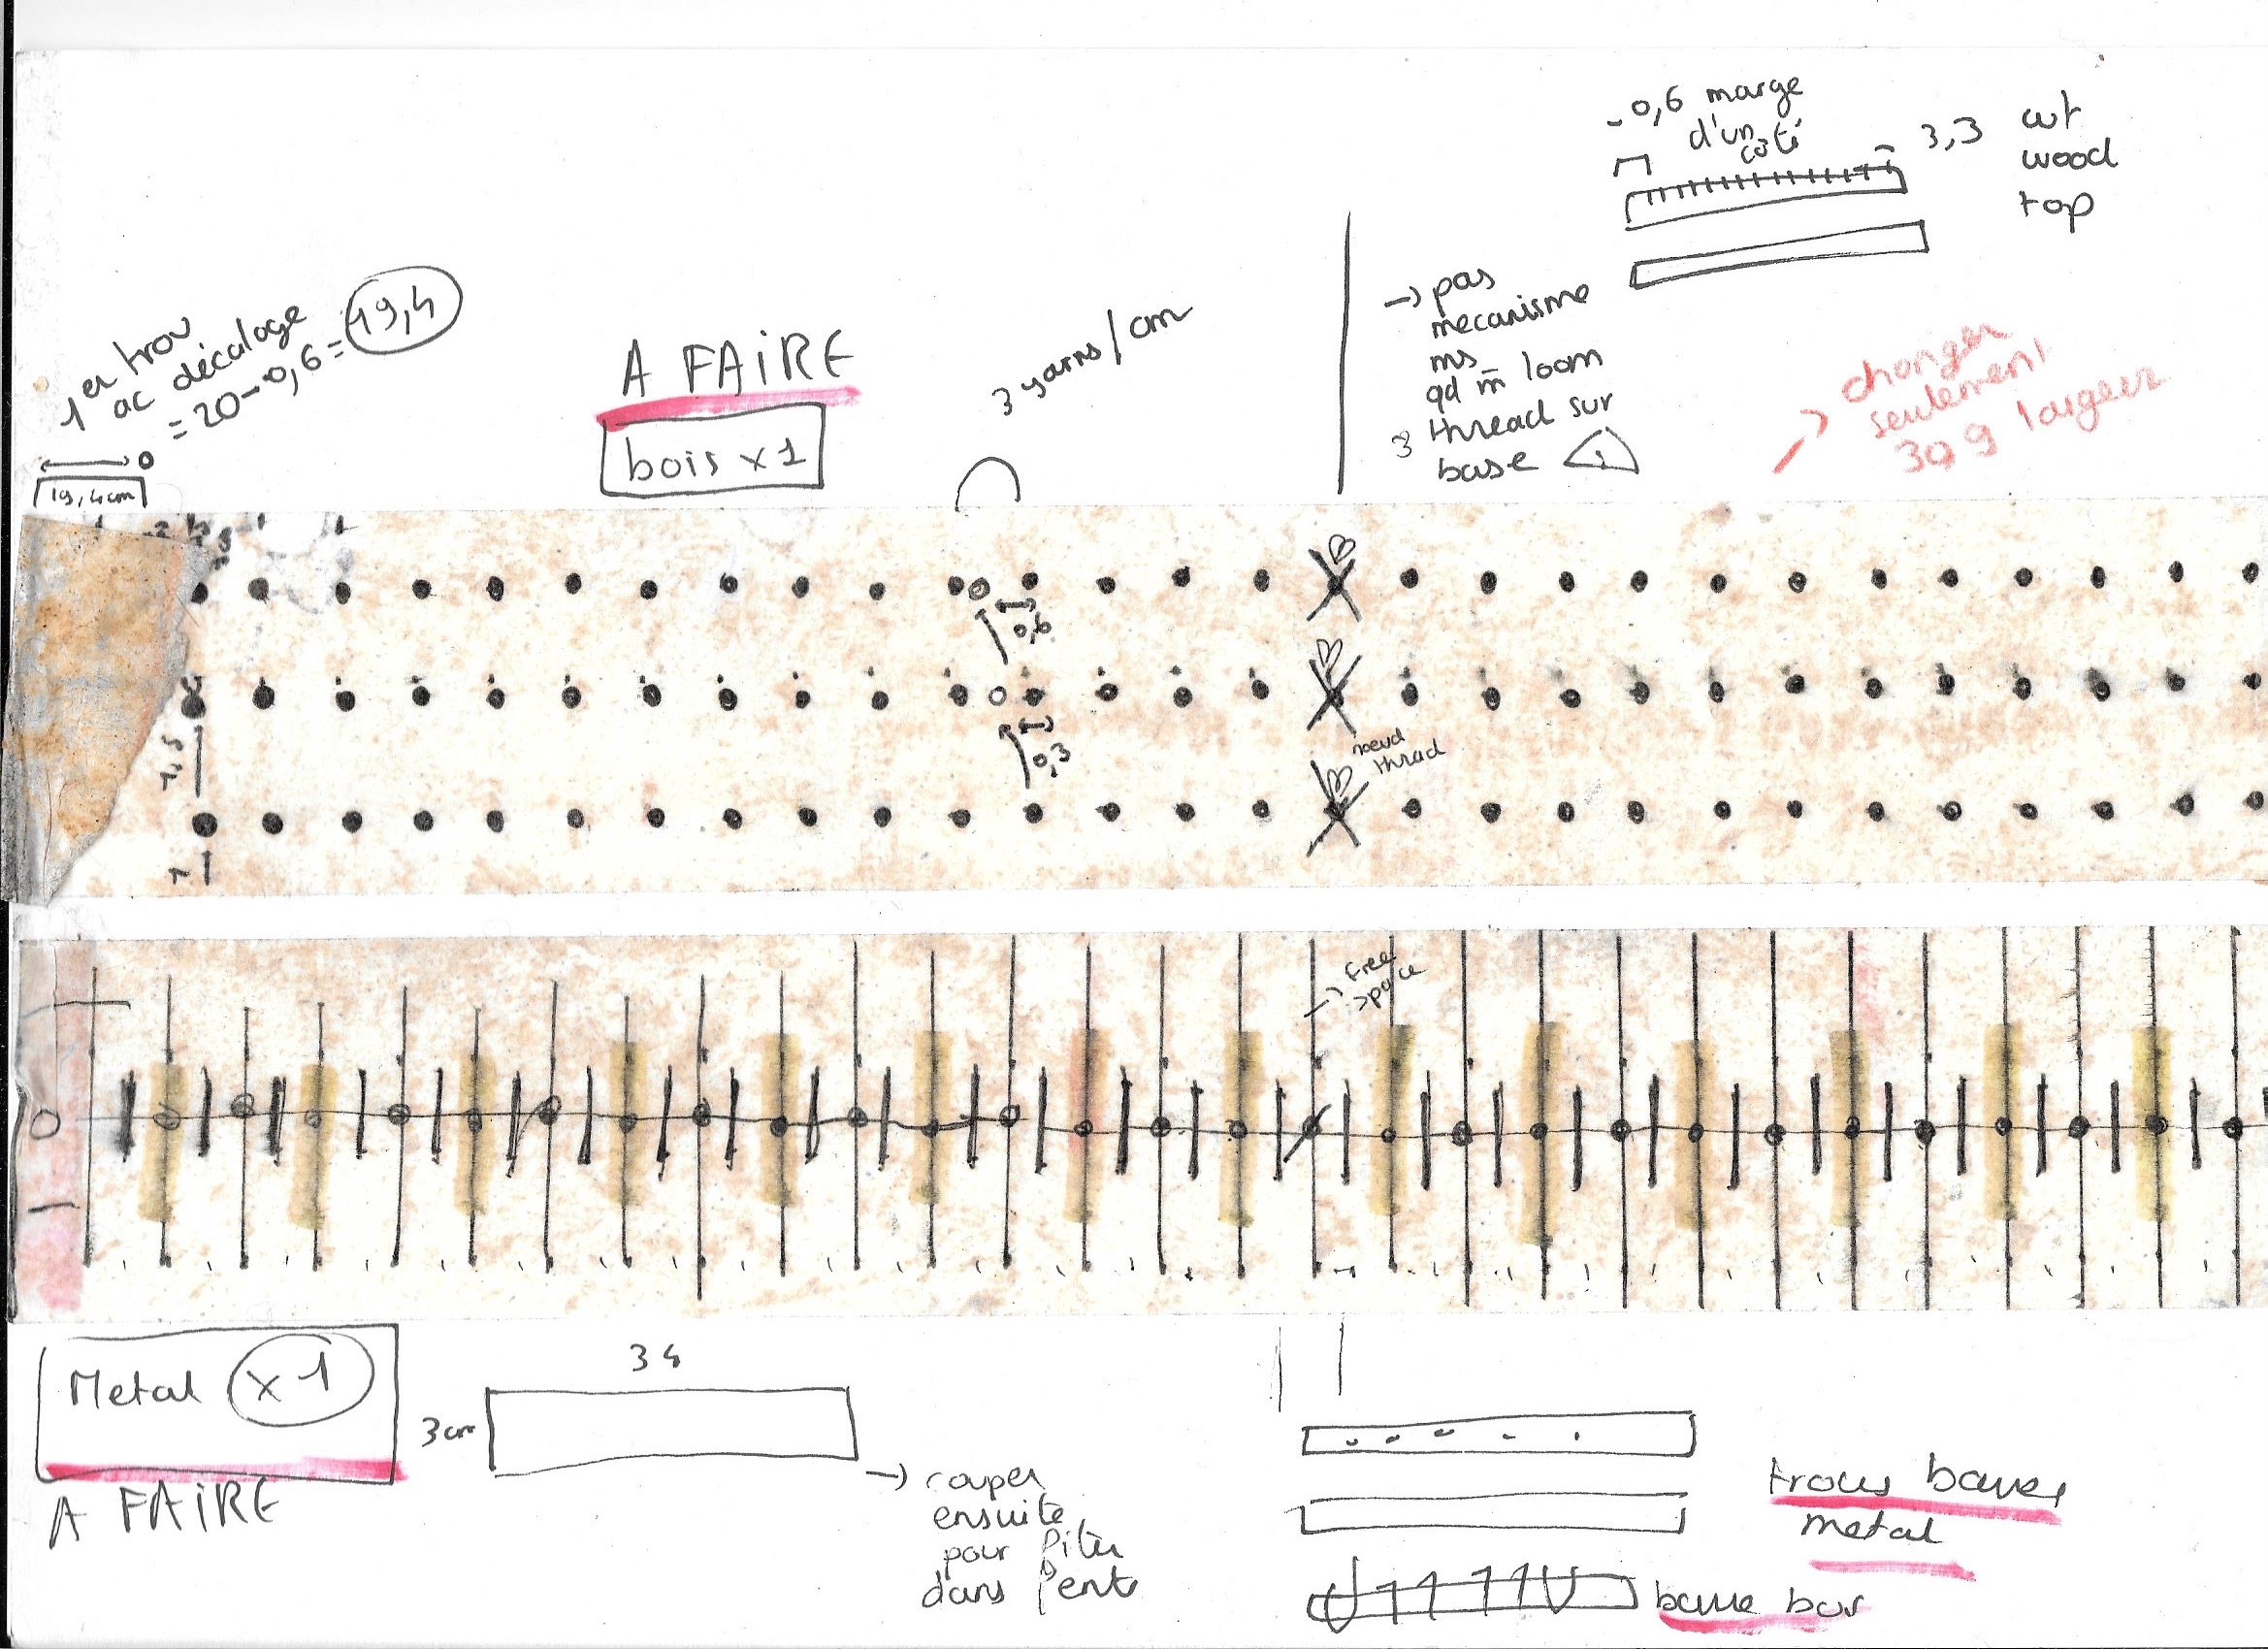 - 0,6 marge
d'un
côté
3,3 cut
wood
top
1er trou
ac décalage
= 20 - 0,6 = 19,4
0
19,4cm
A FAIRE
bois x 1
3 yarns/cm
→ pas
mecanisme
ms
qd m̄ loom
thread sur
base
changer
seulement
largeur
0,6
0,3
noeud
thread
→ Free
space
Metal x 1
A FAIRE
34
3 cm
→ couper
ensuite
pour
dans
trous
metal